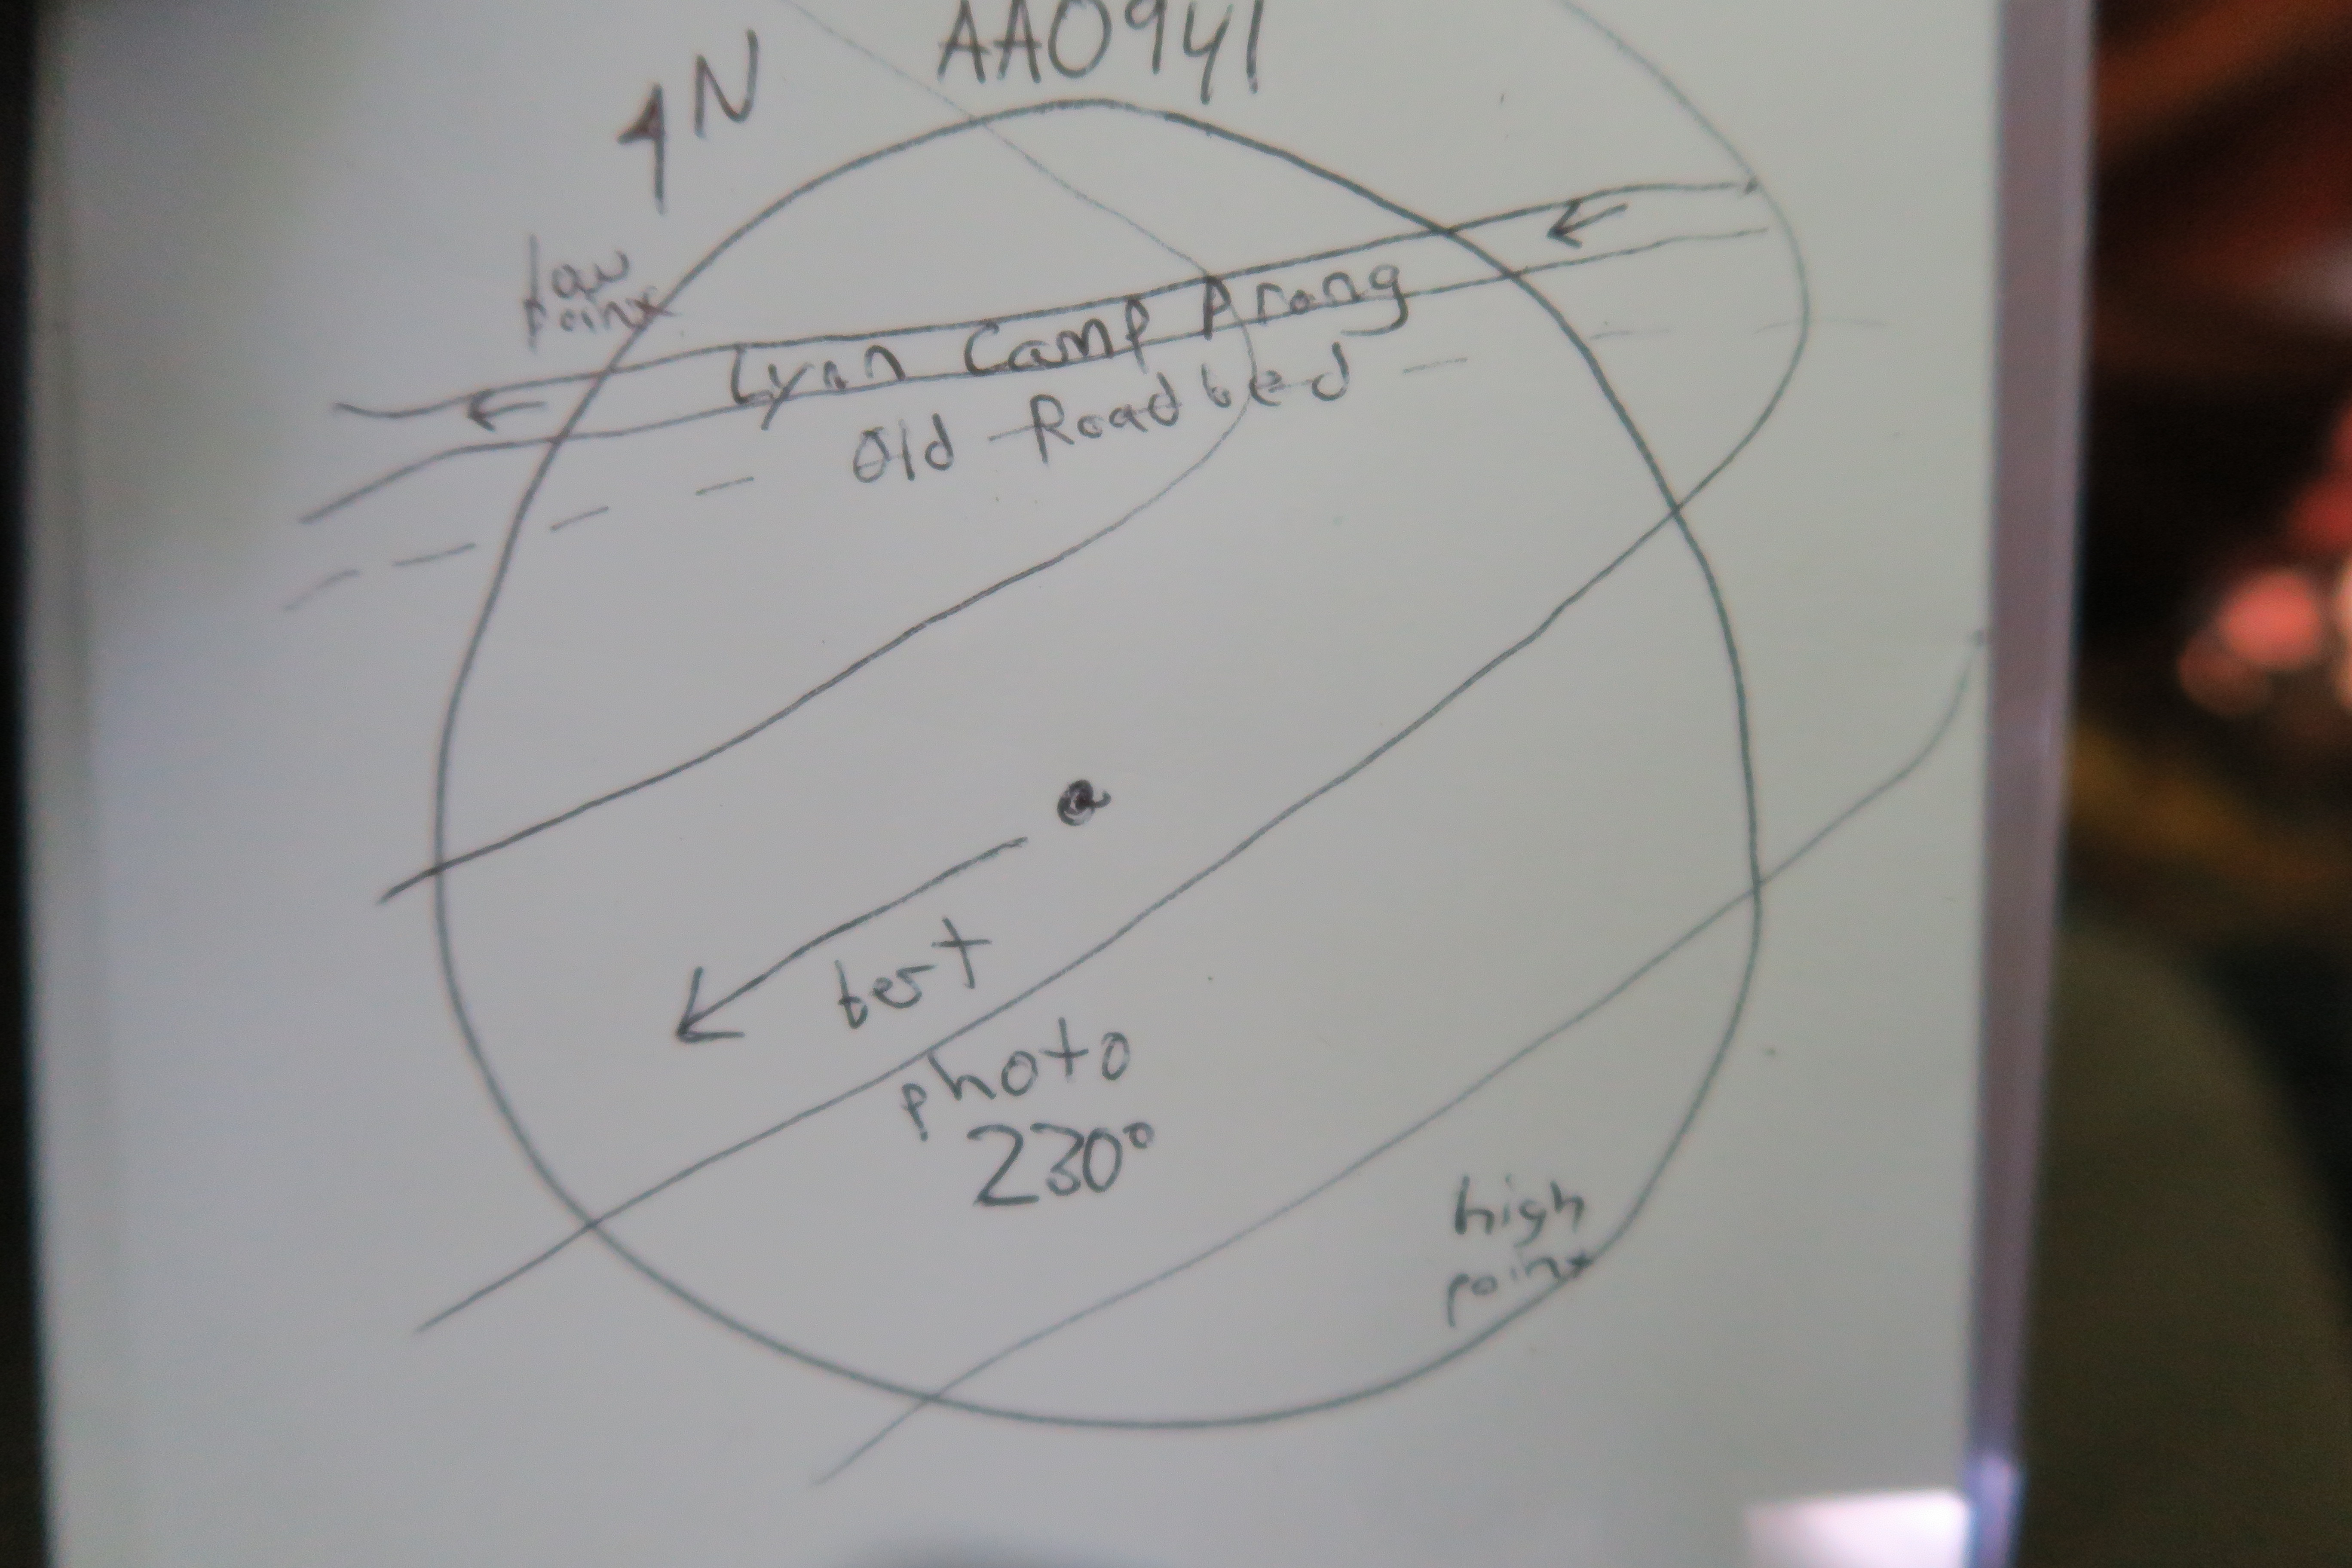 AA0941
N
low
point
Lynn Camp Prong
Old Roadbed
best
photo
230°
high
point